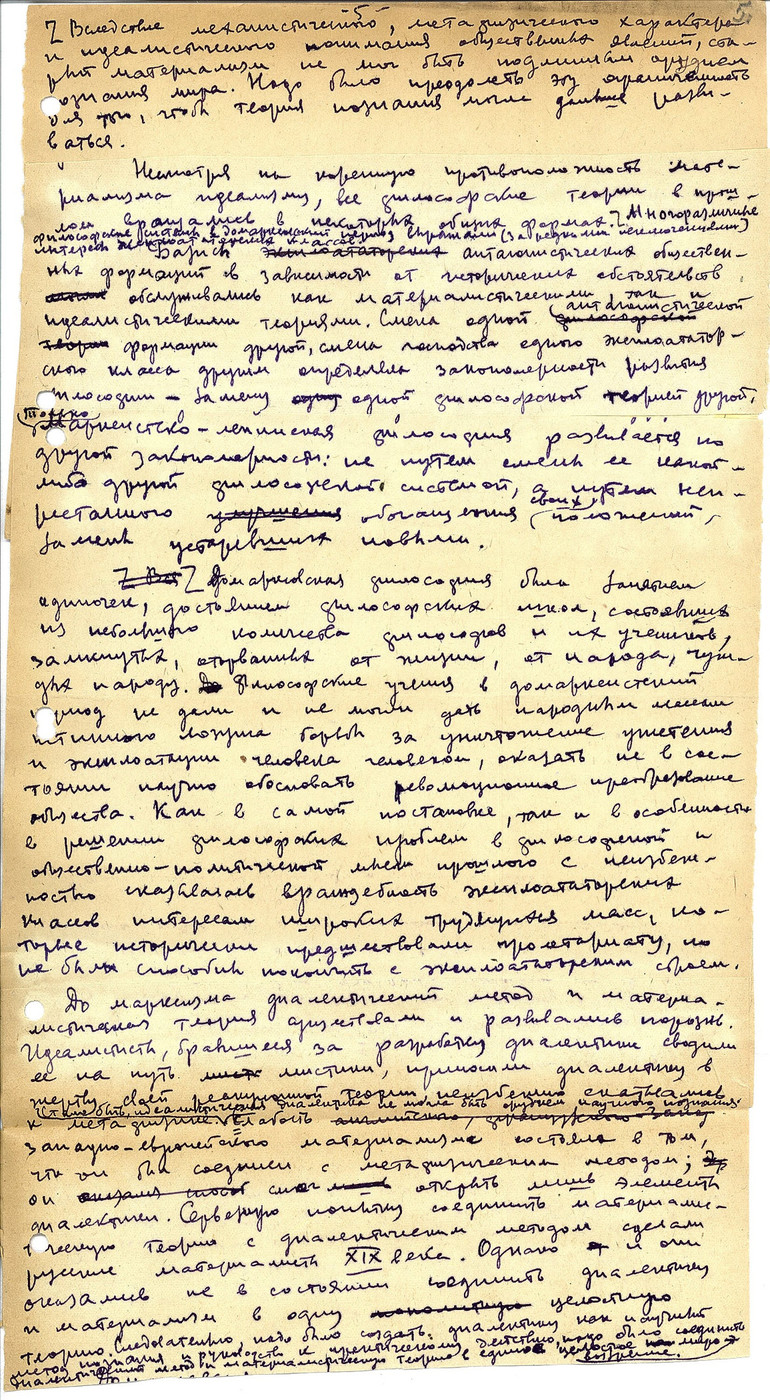 -5-
5.
Z Вследствие механистического, метафизического характера
и идеалистического понимания общественных явлений, ста-
рый материализм не мог быть подлинным орудием
познания мира. Надо было преодолеть эту ограниченность
для того, чтобы теория познания могла дальше разви-
ваться.
Несмотря на коренную противоположность мате-
риализма идеализму, все философские теории в прош-
лом вращались в некоторых общих формах. Z Многоразличные
философские системы в домарксистский период выражали (за редкими исключениями)
интересы эксплоататорских классов.
Базисы эксплоататорских антагонистических обществен-
ных формаций в зависимости от исторических обстоятельств
обслуживались как материалистическими так и
идеалистическими теориями. Смена одной (антагонистической
философской
теории формации другой, смена господства одного эксплоататор-
ского класса другим определяла закономерности развития
философии – замену одну одной философской теорией другой.
(только
Марксистско-ленинская философия развивается по
другой закономерности: не путем смены ее какой-
либо другой философской системой, а путем неп-
рестанного улучшения обогащения (своих положений,
замены устаревших новыми.
Z Вся Z Домарксовская философия была занятием
одиночек, достоянием философских школ, состоявших
из небольшого количества философов и их учеников,
замкнутых, оторванных от жизни, от народа, чуж-
дых народу. До Философские учения в домарксистский
период не дали и не могли дать народным массам
истинного лозунга борьбы за уничтожение угнетения
и эксплоатации человека человеком, оказать не в сос-
тоянии научно обосновать революционное преобразование
общества. Как в самой постановке, так и в особенности
в решении философских проблем в философской и
общественно-политической мысли прошлого с неизбеж-
ностью сказывалась враждебность эксплоататорских
классов интересам широких трудящихся масс, ко-
торые исторически предшествовали пролетариату, но
не были способны покончить с эксплоататорским строем.
До марксизма диалектический метод и материа-
листическая теория существовали и развивались порознь.
Идеалисты, бравшиеся за разработку диалектики сводили
ее на путь мист мистики, приносили диалектику в
жертву своей реакционной теории неизбежно скатывались
к метафизике. Стало быть, идеалистическая диалектика не могла быть орудием научного познания.
Слабость английского, французского Запад
западно-европейского материализма состояла в том,
что он был соединен с метафизическим методом; Эр
он смог открыть лишь элементы
диалектики. Серьезную попытку соединить материалис-
тическую теорию с диалектическим методом сделали
русские материалисты XIX века. Однако и они
оказались не в состоянии соединить диалектику
и материализм в одну монолитную целостную
теорию. Следовательно, надо было создать диалектику как научный
метод познания и руководство к практическому действию, надо было соединить
диалектический метод и материалистическую теорию в единое целостное миро-
воззрение.